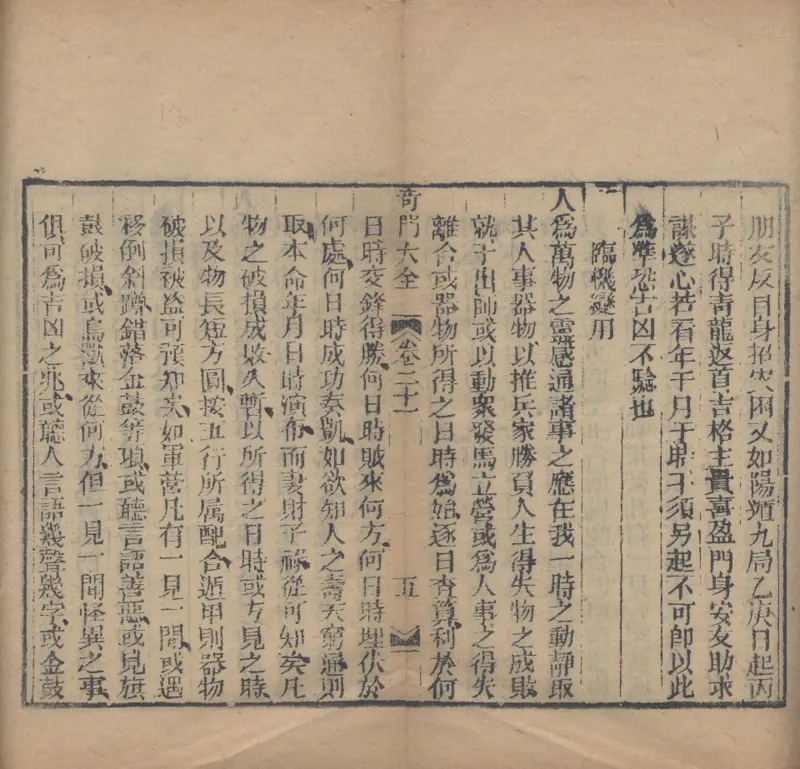 朋友反目身招災困又如陽遁九局乙庚日起丙
子時得青龍返首吉格主貴喜盈門身安友助求
謀遂心若看年干月干時干須另起不可卽以此
爲準恐吉凶不驗也
臨機變用
人爲萬物之靈感通諸事之應在我一時之動靜取
其人事器物以推兵家勝負人生得失物之成敗
就于出師或以動衆發馬立營或爲人事之得失
離合或器物所得之日時爲始逐日查算利於何
奇門大全 卷二十一 五
日時交鋒得勝何日時賊來何方何日時埋伏於
何處何日時成功奏凱如欲知人之壽夭窮通則
取本命年月日時演布而妻財子祿從可知矣凡
物之破損成敗久暫以所得之日時或方見之時
以及物長短方圓按五行所属配合遁甲則器物
破損被盜可預知矣如軍營凡有一見一聞或遇
移倒斜蹲錯落金鼓等項或聽言語善惡或見旗
鼓破損或鳥獸來從何方但一見一聞怪異之事
俱可爲吉凶之兆或聽人言語幾聲幾字或金鼓